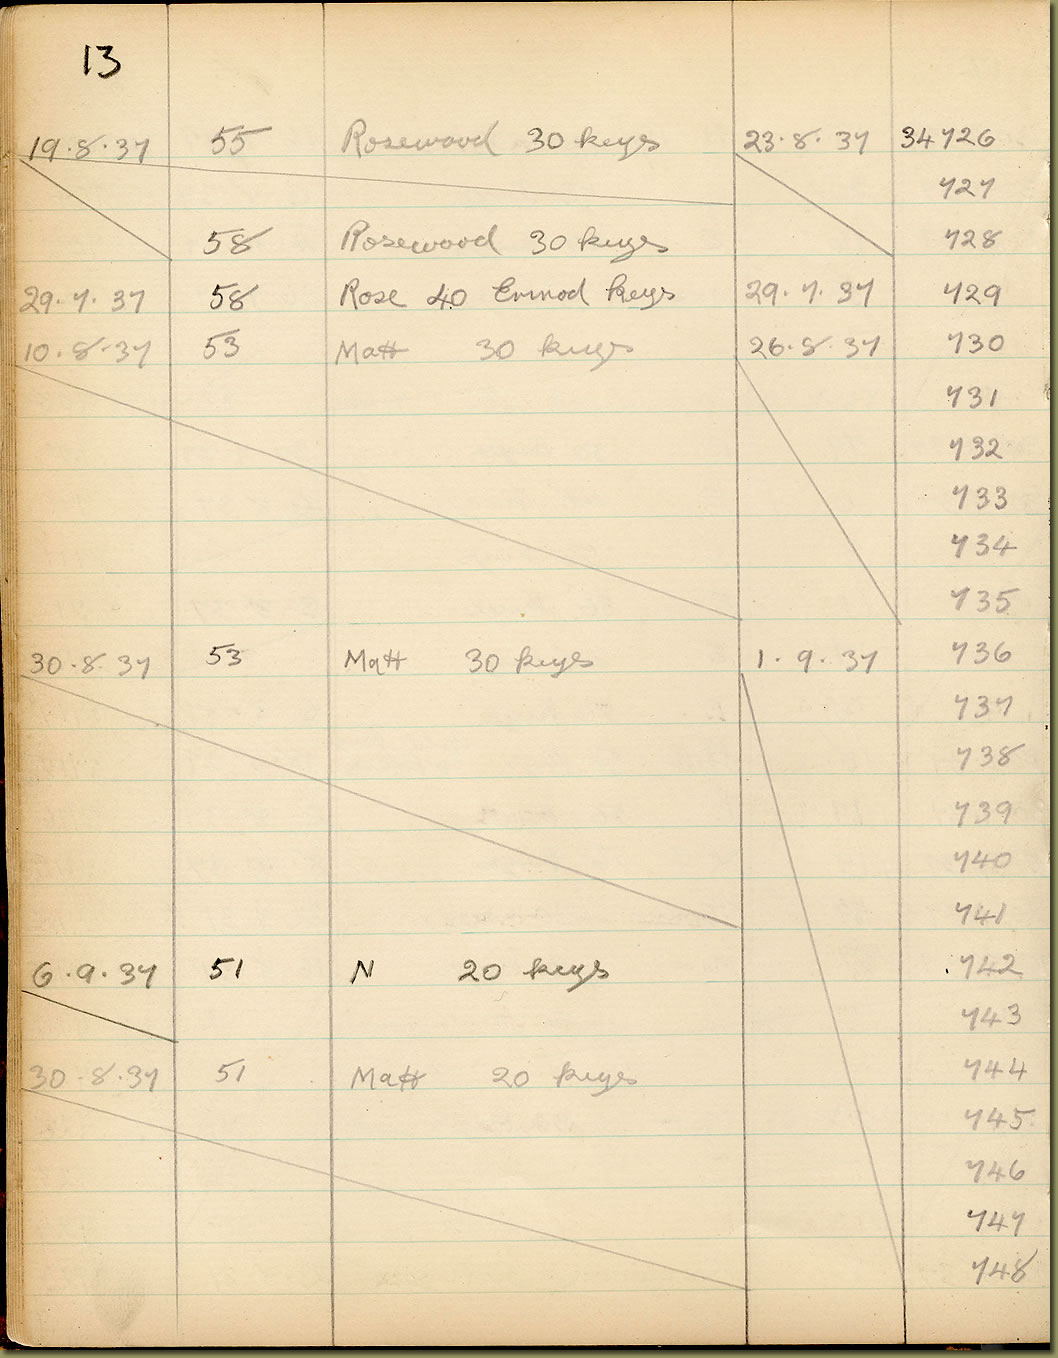 13
19.8.37 55 Rosewood 30 keys 23.8.37 34726
727
58 Rosewood 30 keys 728
29.7.37 58 Rose 40 Ermod keys 29.7.37 729
10.8.37 53 Matt 30 keys 26.8.37 730
731
732
733
734
735
30.8.37 53 Matt 30 keys 1.9.37 736
737
738
739
740
741
6.9.37 51 N 20 keys 742
743
30.8.37 51 Matt 20 keys 744
745
746
747
748